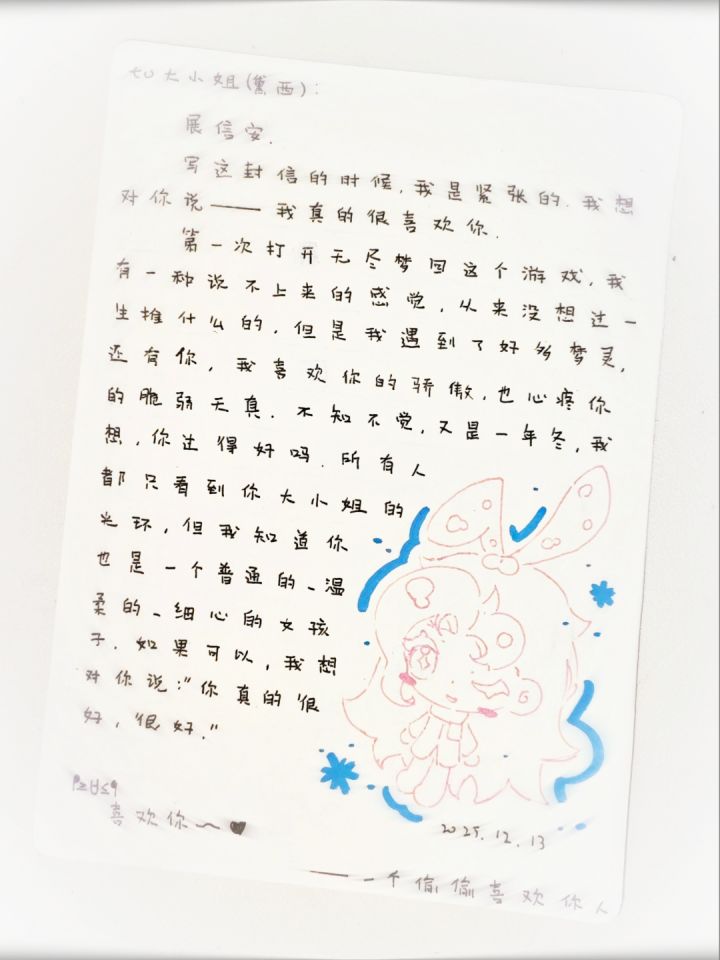 七七大小姐(黛西):
展信安.
写这封信的时候,我是紧张的.我想
对你说——我真的很喜欢你.
第一次打开无尽梦回这个游戏,我
有一种说不上来的感觉,从来没想过一
生推什么的,但是我遇到了好多梦灵,
还有你,我喜欢你的骄傲,也心疼你
的脆弱天真.不知不觉,又是一年冬,我
想,你过得好吗.所有人
都只看到你大小姐的
光环,但我知道你
也是一个普通的、温
柔的、细心的女孩
子.如果可以,我想
对你说:"你真的很
好,很好."
喜欢你~♥
2025.12.13
——一个偷偷喜欢你人